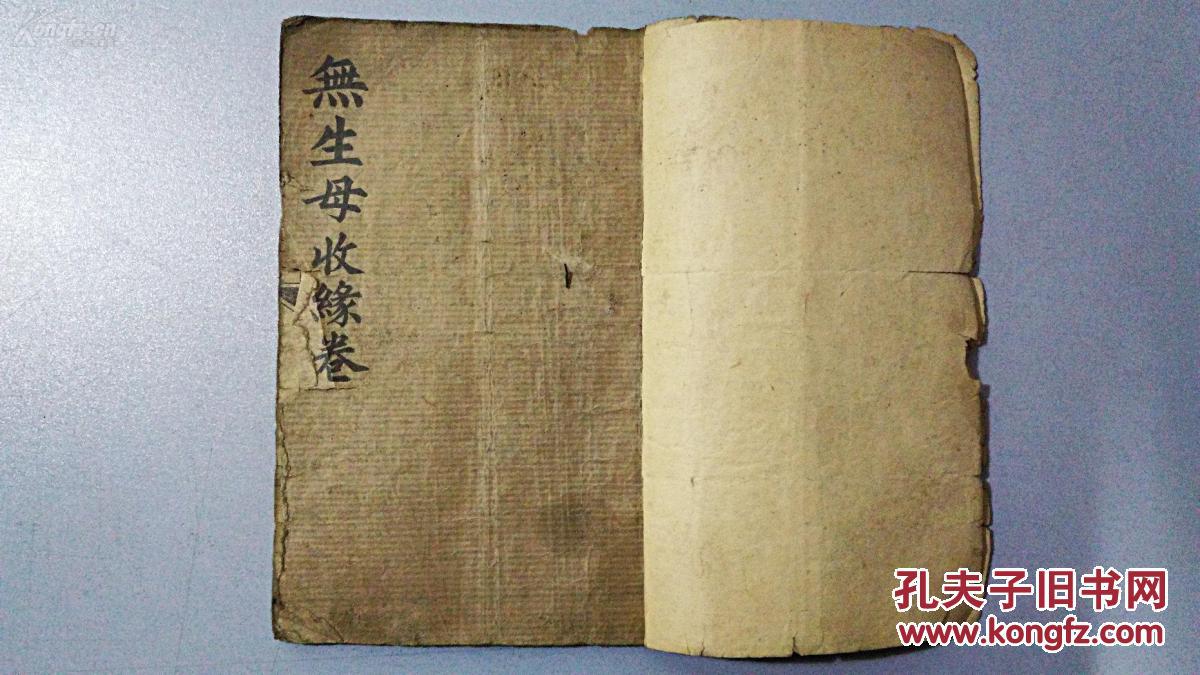 Kongfz.cn
無生母收緣卷
孔夫子旧书网
www.kongfz.com